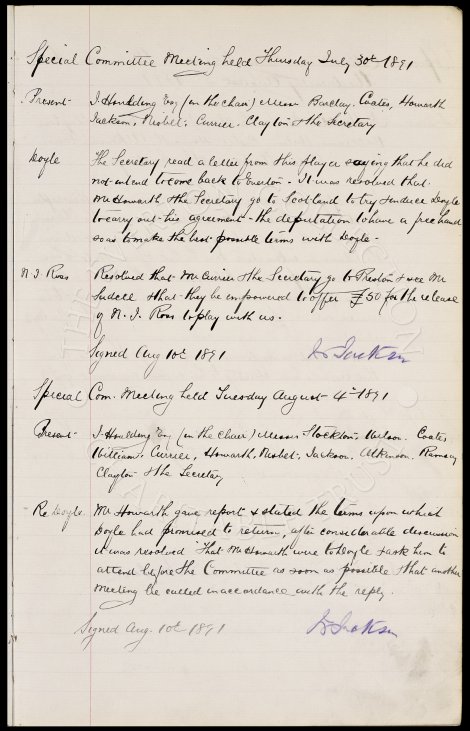 Special Committee Meeting held Thursday July 30th 1891
Present- J Houlding Esq (in the chair) Messrs Barclay. Coates, Howarth
Jackson, Nisbet, Currier. Clayton & the Secretary
Doyle The Secretary read a letter from this player saying that he did
not intend to come back to Everton - It was resolved that
Mr Howarth & the Secretary go to Scotland to try & induce Doyle
to carry out his agreement - the deputation to have a free hand
so as to make the best possible terms with Doyle -
N. J. Ross Resolved that Mr Currier & the Secretary go to Preston & see Mr
Sudell & that they be empowered to offer £50 for the release
of N. J. Ross to play with us.
Signed Aug 10th 1891 Jackson
Special Com. Meeting held Tuesday August 4th 1891
Present- J Houlding Esq (in the chair) Messrs Stockton. Wilson. Coates
Williams, Currier, Howarth, Nisbet, Jackson. Atkinson. Ramsay
Clayton & the Secretary
Re Doyle. Mr Howarth gave report & stated the terms upon which
Doyle had promised to return, after considerable discussion
it was resolved "That Mr Howarth wire to Doyle & ask him to
attend before the Committee as soon as possible & that another
meeting be called in accordance with the reply.
Signed Aug. 10th 1891 Jackson